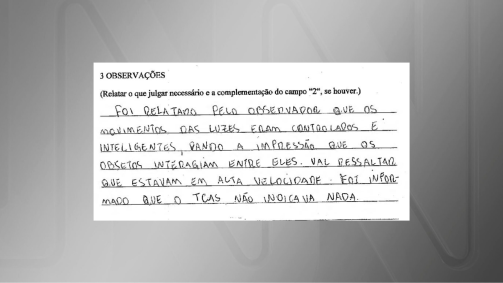 3 OBSERVAÇÕES
(Relatar o que julgar necessário e a complementação do campo "2", se houver.)
FOI RELATADO PELO OBSERVADOR QUE OS
MOVIMENTOS DAS LUZES ERAM CONTROLADOS E
INTELIGENTES, DANDO A IMPRESSÃO QUE OS
OBJETOS INTERAGIAM ENTRE ELES. VAL RESSALTAR
QUE ESTAVAM EM ALTA VELOCIDADE. FOI INFOR-
MADO QUE O TCAS NÃO INDICAVA NADA.